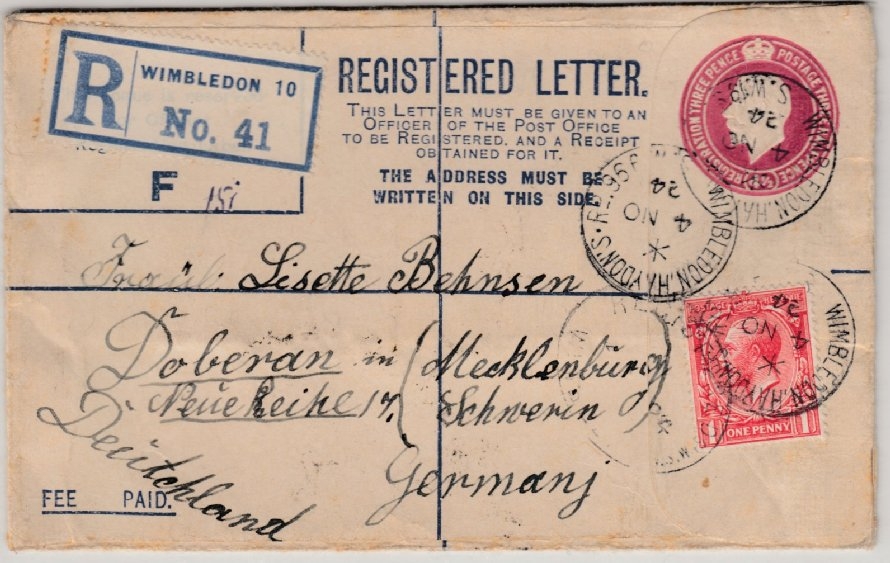 R WIMBLEDON 10
No. 41
REGISTERED LETTER.
THIS LETTER MUST BE GIVEN TO AN
OFFICER OF THE POST OFFICE
TO BE REGISTERED, AND A RECEIPT
OBTAINED FOR IT.
THE ADDRESS MUST BE
WRITTEN ON THIS SIDE.
REGISTRATION THREE PENCE POSTAGE
F
WIMBLEDON. HAYDON'S. RD. 96 S.W.19
4 NO
24
WIMBLEDON. HAYDON'S
4 NO
24
WIMBLEDON. HAYDON'S
4 NO
24
ONE PENNY
1
Fräul. Lisette Behnsen
Doberan in (Mecklenburg
Neue Reihe 17. Schwerin)
Deutchland
Germany
FEE PAID.